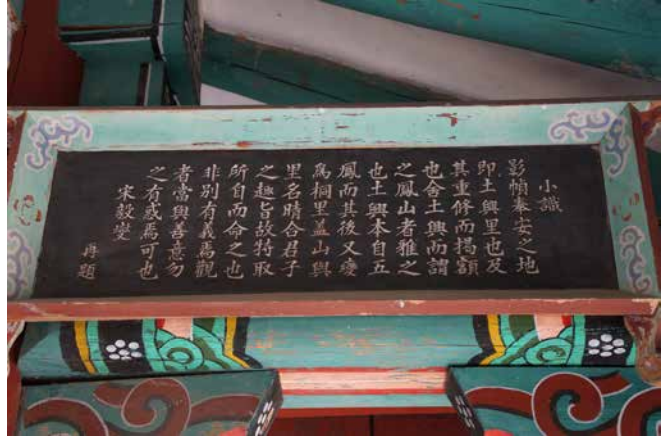 小識
影幀奉安之地
即土興里也及
其重修而揭額
也舍土興而謂
之鳳山者雅之
也土興本自五
鳳而其後又變
爲桐里盖山與
里名暗合君子
之趣旨故特取
所自而命之也
非别有義焉觀
者當興善意勿
之有惑焉可也
宋毅燮
再題